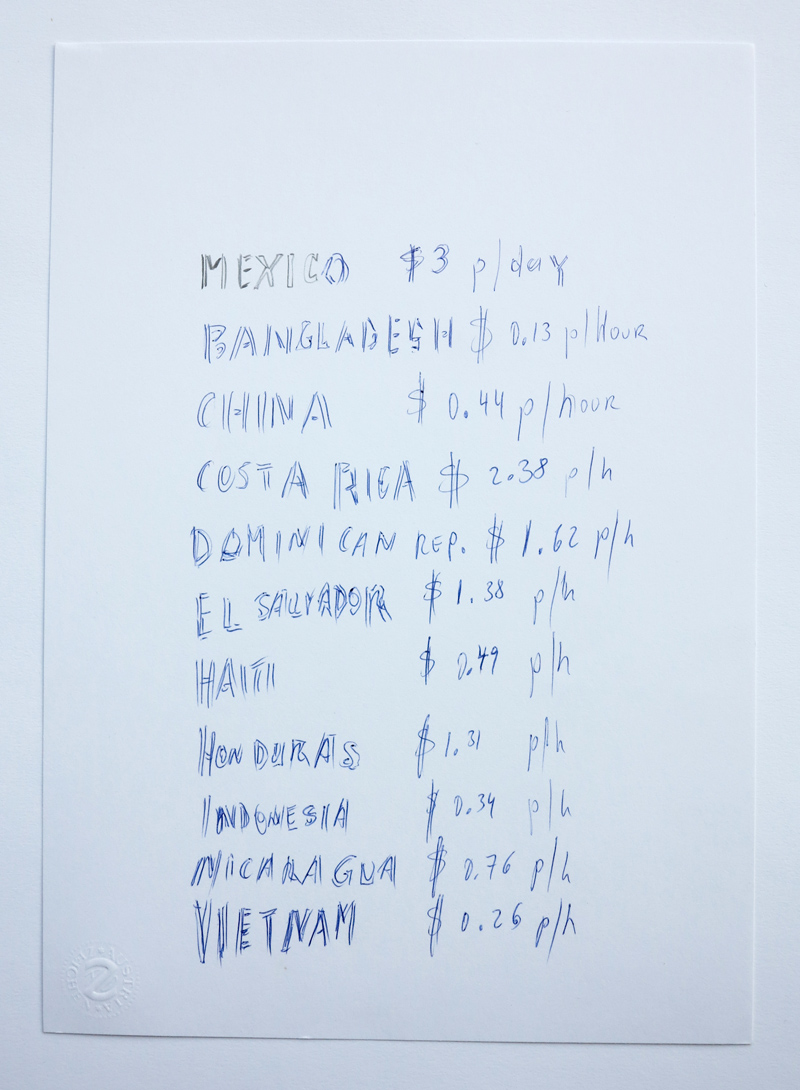 MEXICO $3 p/day
BANGLADESH $ 0.13 p/Hour
CHINA $ 0.44 p/hour
COSTA RICA $ 2.38 p/h
DOMINICAN REP. $ 1.62 p/h
EL SALVADOR $ 1.38 p/h
HAITI $ 0.49 p/h
HONDURAS $1.31 p/h
INDONESIA $ 0.34 p/h
NICARAGUA $ 0.76 p/h
VIETNAM $ 0.26 p/h